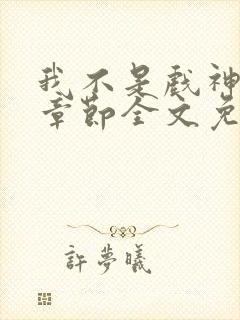 我不是戲神
章節全文免
許夢曦